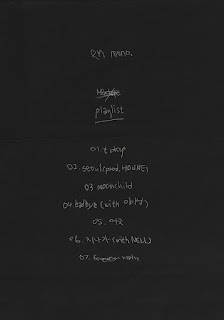 RM mono.
Mixtape
playlist
01. tokyo
02. seoul (prod. HONNE)
03 moonchild
04. badbye (with
05.
06. 지나가 (with NELL)
07. forever rain